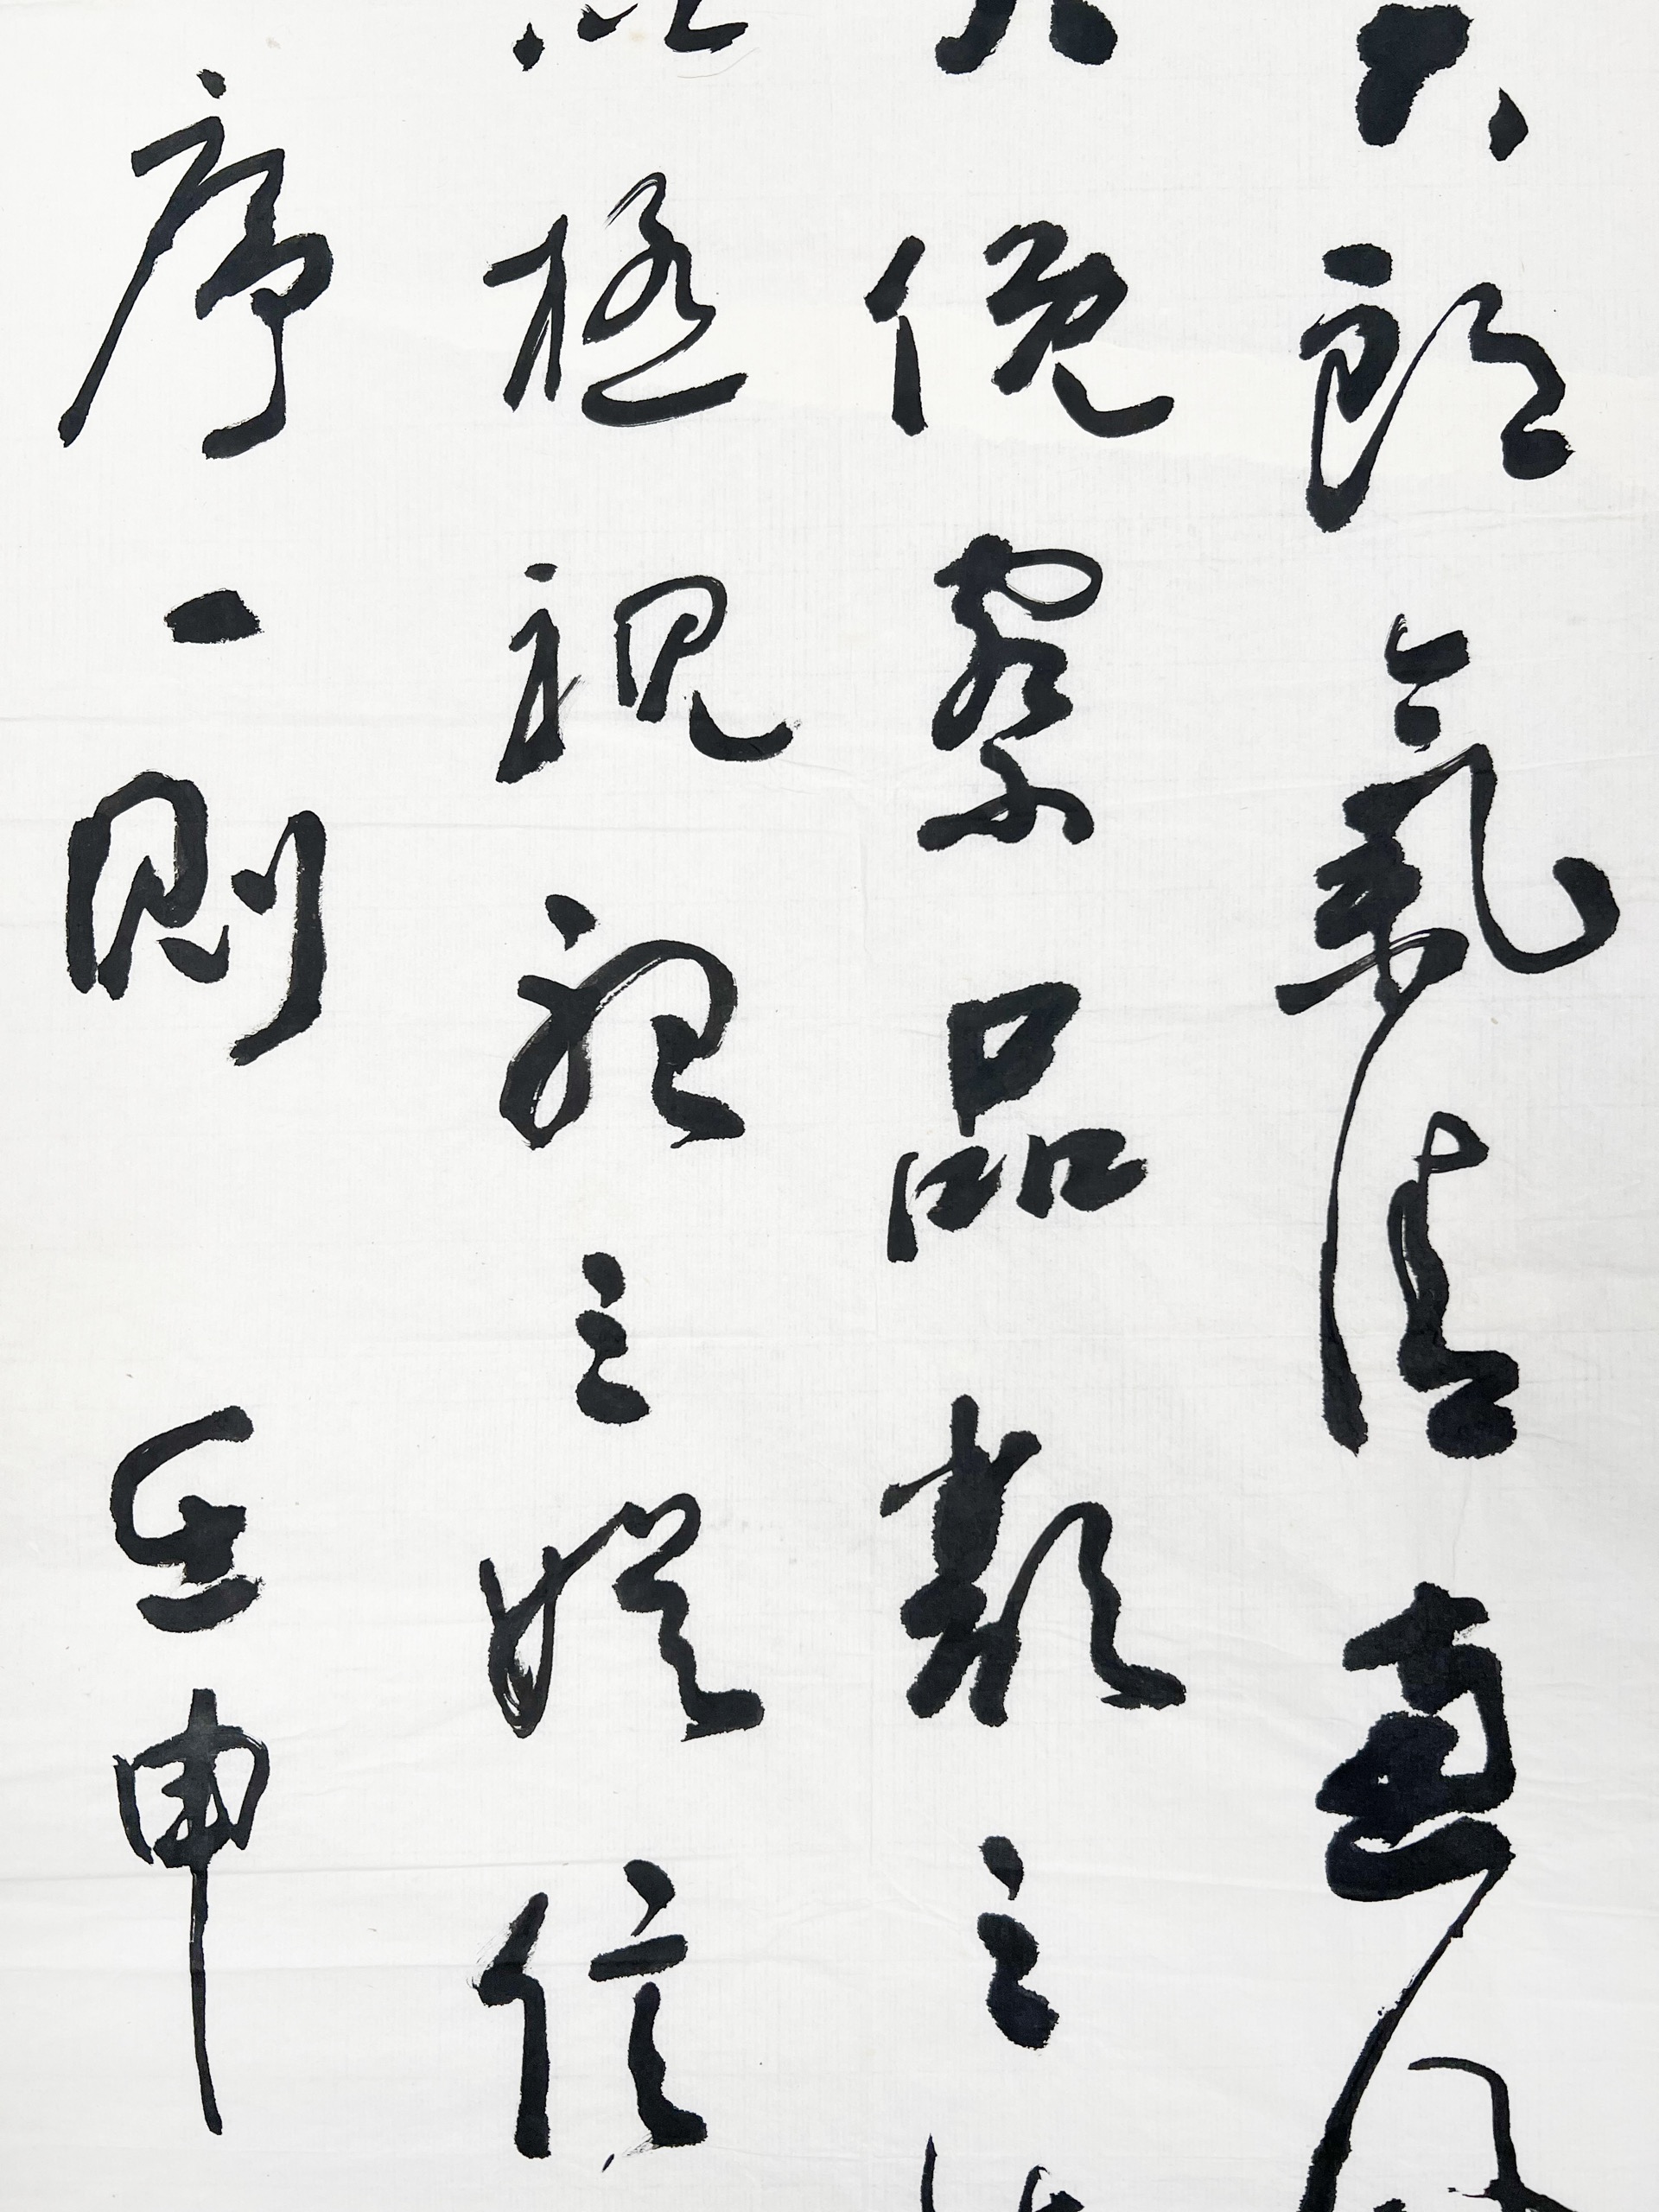 朗氣清惠風
大俯察品類之盛
以極視聽之娛信
序一則 壬申